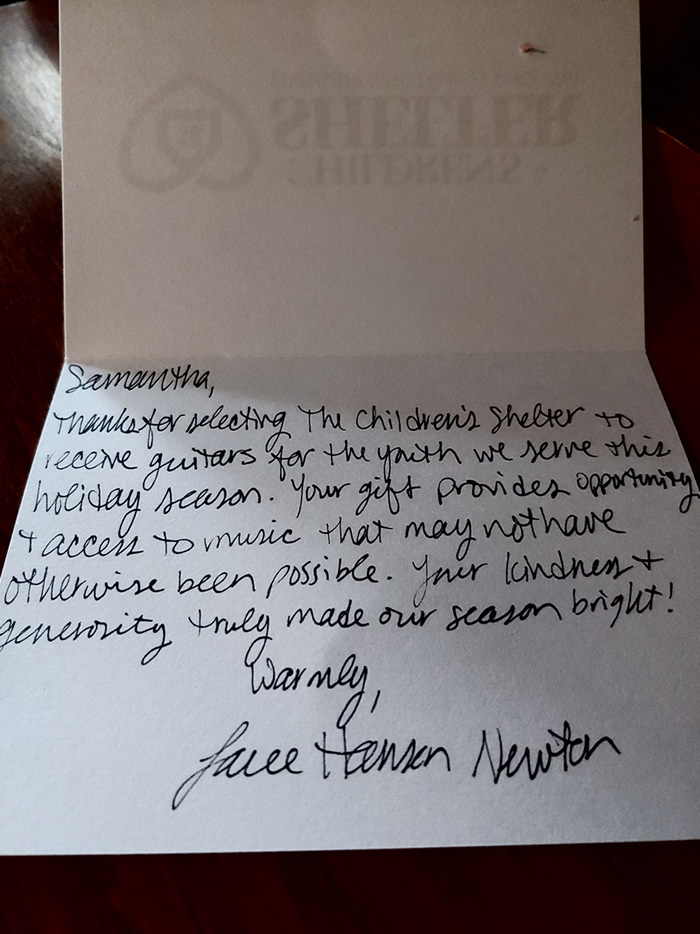 CHILDREN'S
SHELTER
Samantha,
Thanks for selecting The Children's Shelter to
receive guitars for the youth we serve this
holiday season. Your gift provides opportunity
+ access to music that may not have
otherwise been possible. Your kindness +
generosity truly made our season bright!
Warmly,
Hanson Newton